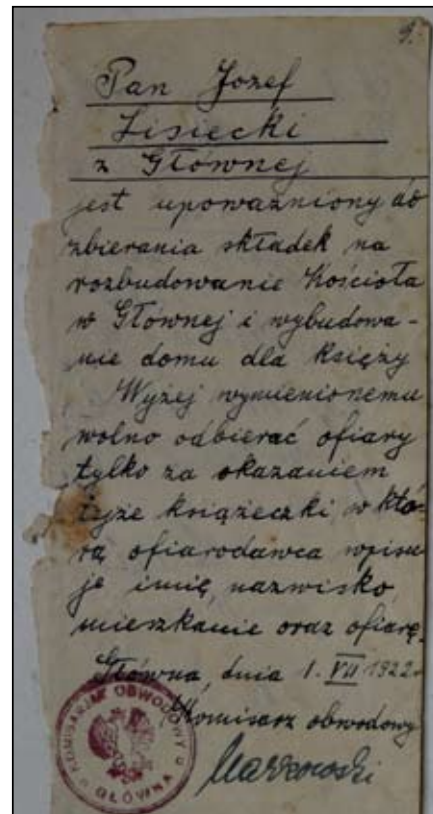 9.
Pan Jozef
Lisiecki
z Głównej
jest upoważniony do
zbierania składek na
rozbudowanie Kościoła
w Głównej i wybudowa-
nie domu dla księży
Wyżej wymienionemu
wolno odbierać ofiary
tylko za okazaniem
tyże książeczki, w któ-
rą ofiarodawca wpisu
je imię, nazwisko,
mieszkanie oraz ofiarę.
Główna, dnia 1. VII 1922.
Komisarz obwodowy
KOMISARJAT OBWODOWY
GŁÓWNA